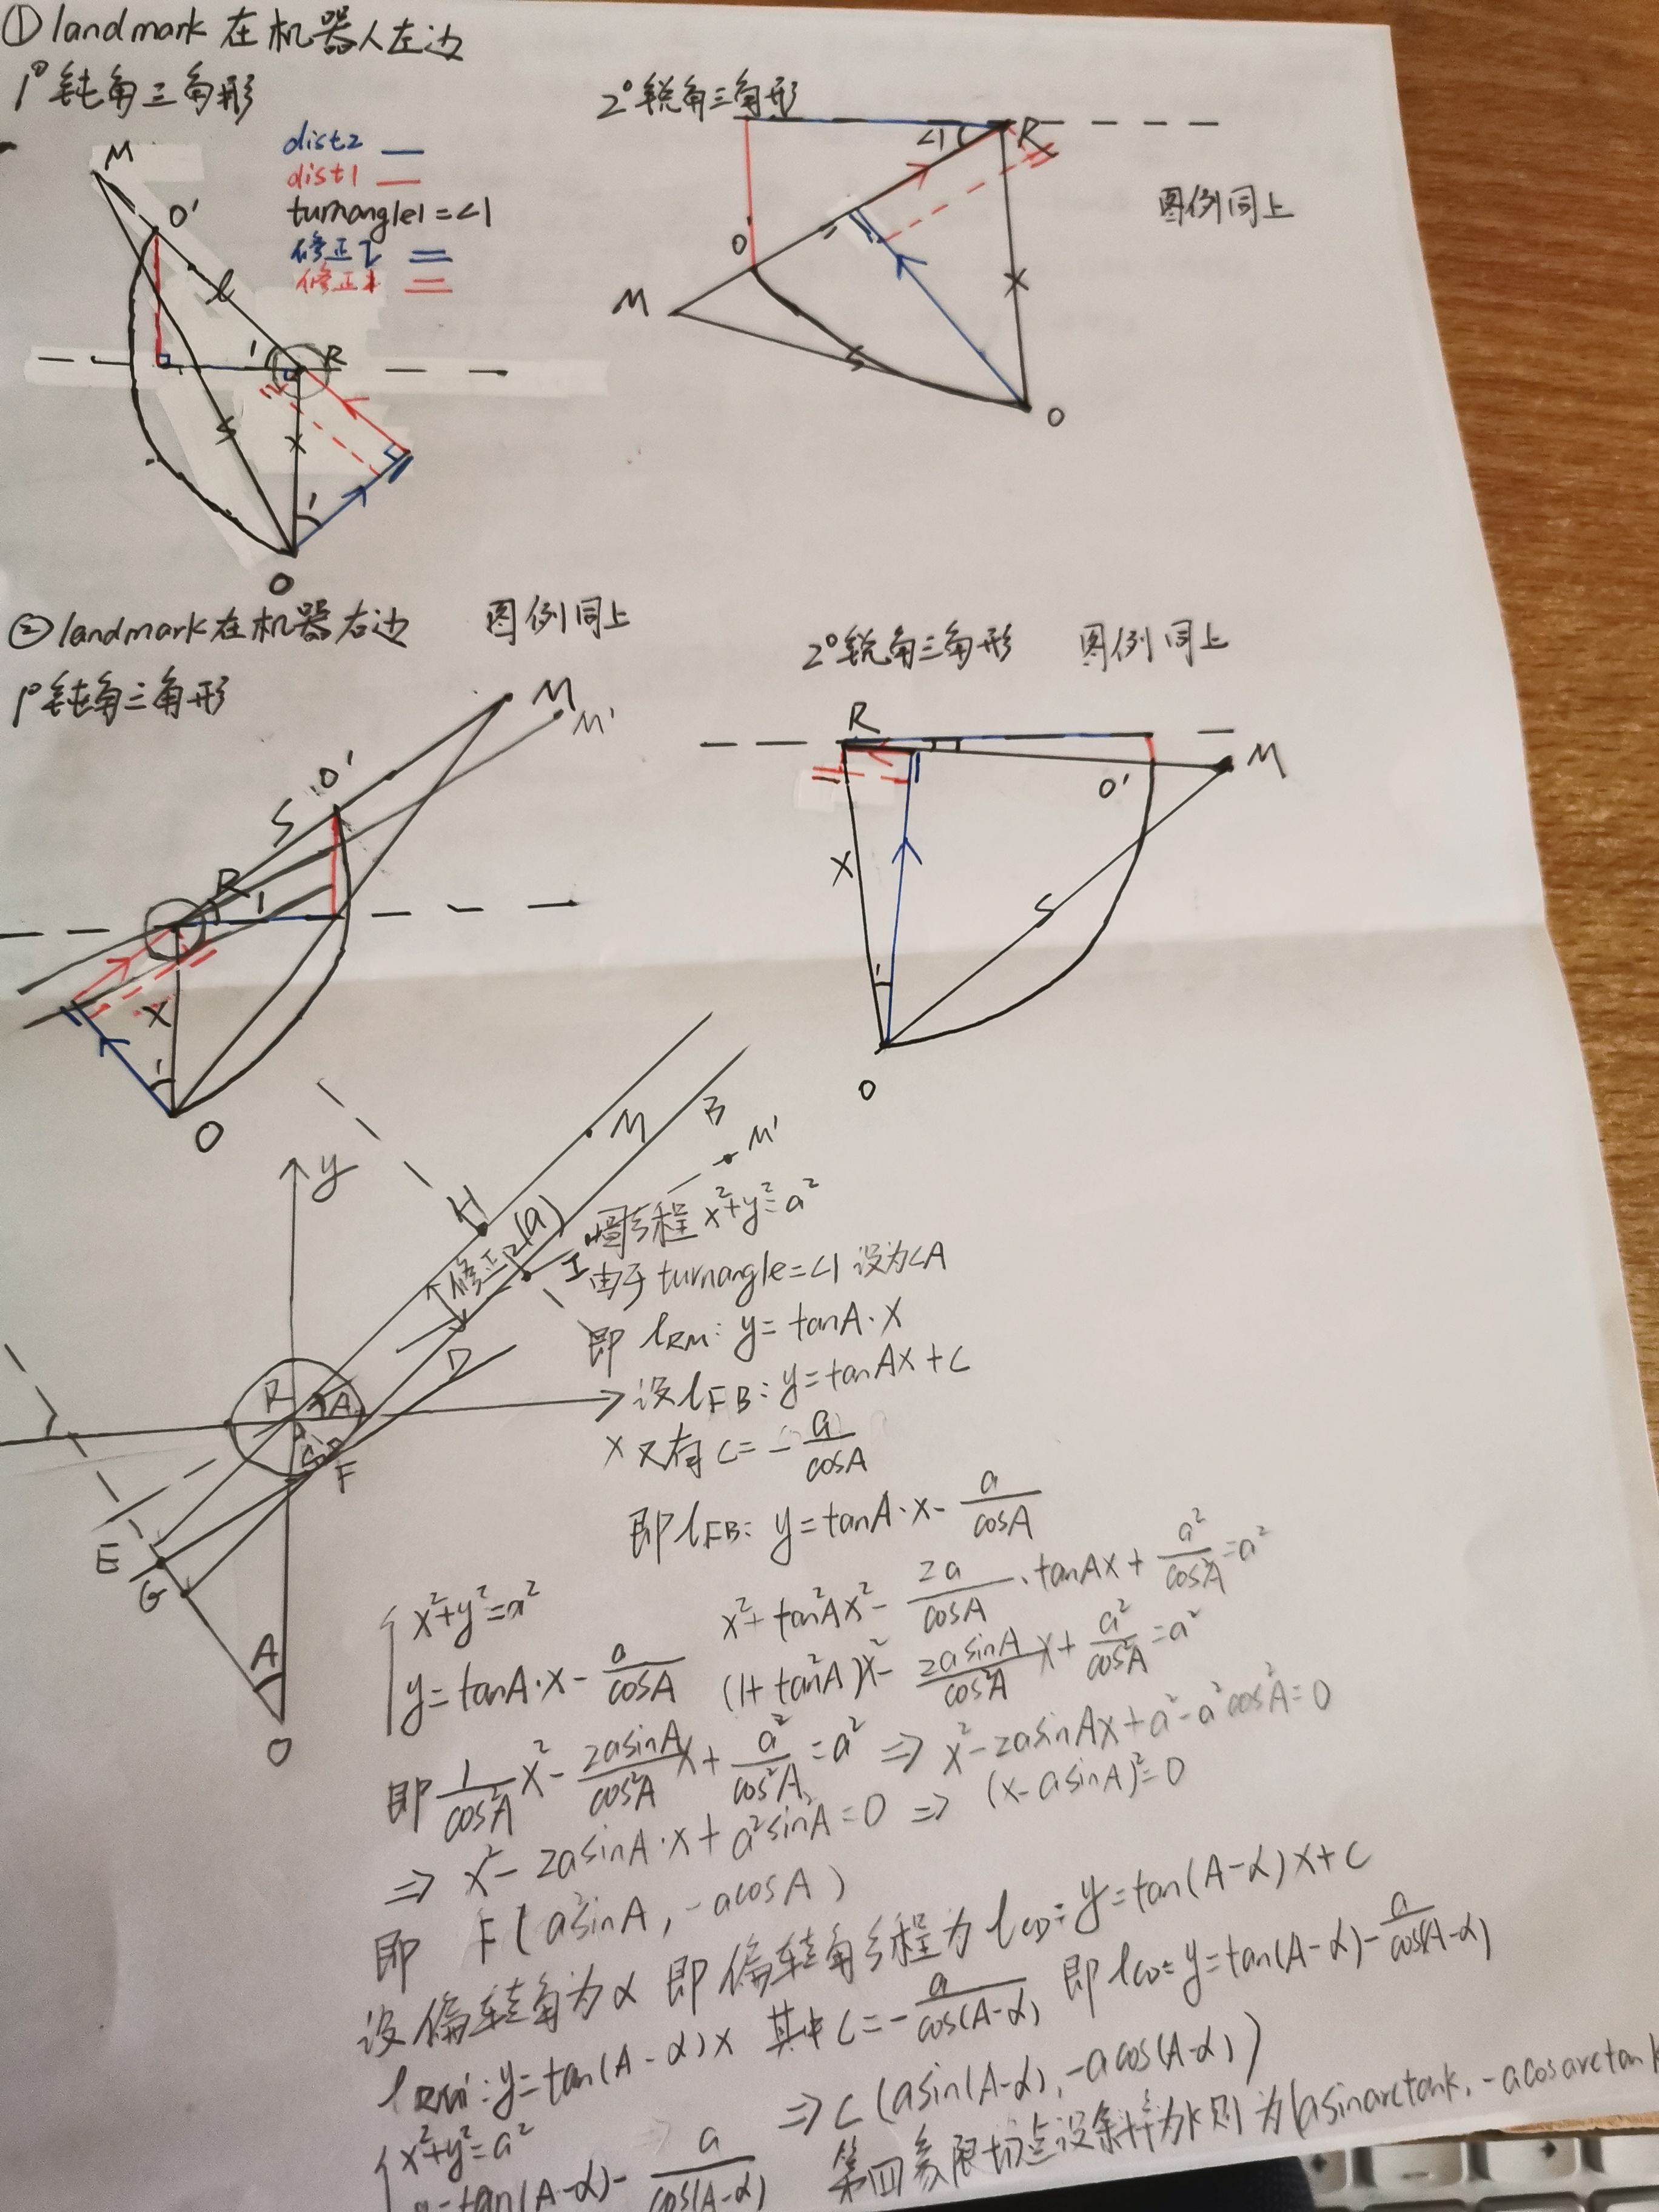 ① landmark 在机器人左边
1° 钝角三角形
dist2
dist1
turnangle1=∠1
修正2
修正1
M
O'
l
1
R
S
X
1
O
2° 锐角三角形
∠1
R
图例同上
O'
M
X
S
O
② landmark 在机器右边 图例同上
1° 钝角三角形
M
M'
O'
S
R
1
X
1
O
2° 锐角三角形 图例同上
R
M
O'
X
S
1
O
y
M
B
M'
H
修正2(a)
I
D
R
A
F
E
G
A
O
圆方程 x²+y²=a²
由于 turnangle=∠1 设为∠A
即 l_RM: y=tanA·x
设 l_FB: y=tanAx+C
x 又有 C=-a/cosA
即 l_FB: y=tanA·x-a/cosA
x²+y²=a²
y=tanA·x-a/cosA
x²+tan²Ax²-2a/cosA·tanAx+a²/cos²A=a²
(1+tan²A)x²-2asinA/cos²A x+a²/cos²A=a²
即 1/cos²A x²-2asinA/cos²A x+a²/cos²A=a² ⇒ x²-2asinAx+a²-a²cos²A=0
⇒ x²-2asinA·x+a²sin²A=0 ⇒ (x-asinA)²=0
即 F(asinA, -acosA)
设偏转角为α 即偏转角方程为 l_CD: y=tan(A-α)x+C
l_RM': y=tan(A-α)x 其中 C=-a/cos(A-α) 即 l_CD: y=tan(A-α)-a/cos(A-α)
x²+y²=a² ⇒ C(asin(A-α), -acos(A-α))
y=tan(A-α)-a/cos(A-α) 第四象限切点设斜率为k则为(asinarctank, -acosarctank